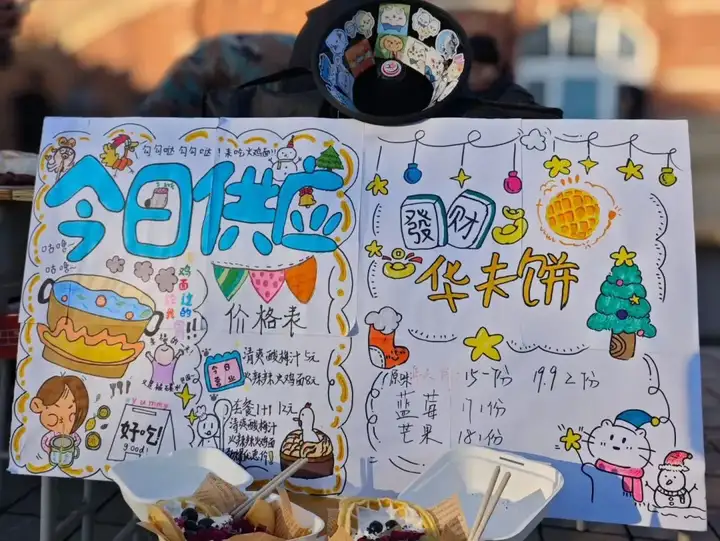 勾勾哒 勾勾哒！来吃火鸡面!!
今日供应
咕噜~
咕噜~
价格表
清爽酸梅汁 5元
火辣辣火鸡面 8元
今日
营业
套餐 1+1 12元
清爽酸梅汁
火辣辣火鸡面
yummy
好吃!
good!
發 财
华夫饼
原味 15一份 19.9 2份
蓝莓 17 1份
芒果 18 1份